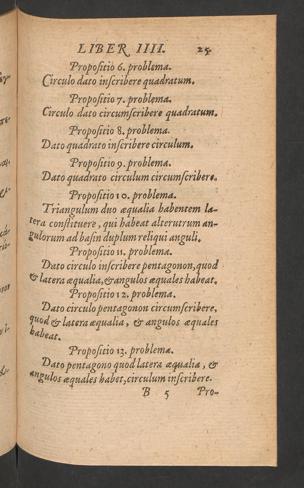 LIBER IIII. 25
Propositio 6. problema.
Circulo dato inscribere quadratum.
Propositio 7. problema.
Circulo dato circumscribere quadratum.
Propositio 8. problema.
Dato quadrato inscribere circulum.
Propositio 9. problema.
Dato quadrato circulum circumscribere.
Propositio 10. problema.
Triangulum duo æqualia habentem la-
tera constituere, qui habeat alterutrum an-
gulorum ad basin duplum reliqui anguli.
Propositio 11. problema.
Dato circulo inscribere pentagonon, quod
& latera æqualia, & angulos æquales habeat.
Propositio 12. problema.
Dato circulo pentagonon circumscribere,
quod & latera æqualia, & angulos æquales
habeat.
Propositio 13. problema.
Dato pentagono quod latera æqualia, &
angulos æquales habet, circulum inscribere.
B 5 Pro-